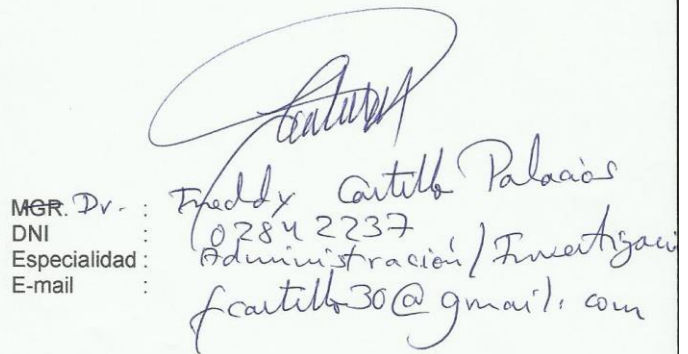 MGR. Dv. : Freddy Castillo Palacios
DNI : 02842237
Especialidad : Administración / Investigaci
E-mail : fcastillo30@gmail.com